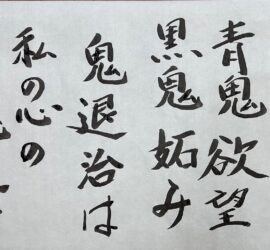 青鬼欲望
黒鬼妬み
鬼退治は
私の心の